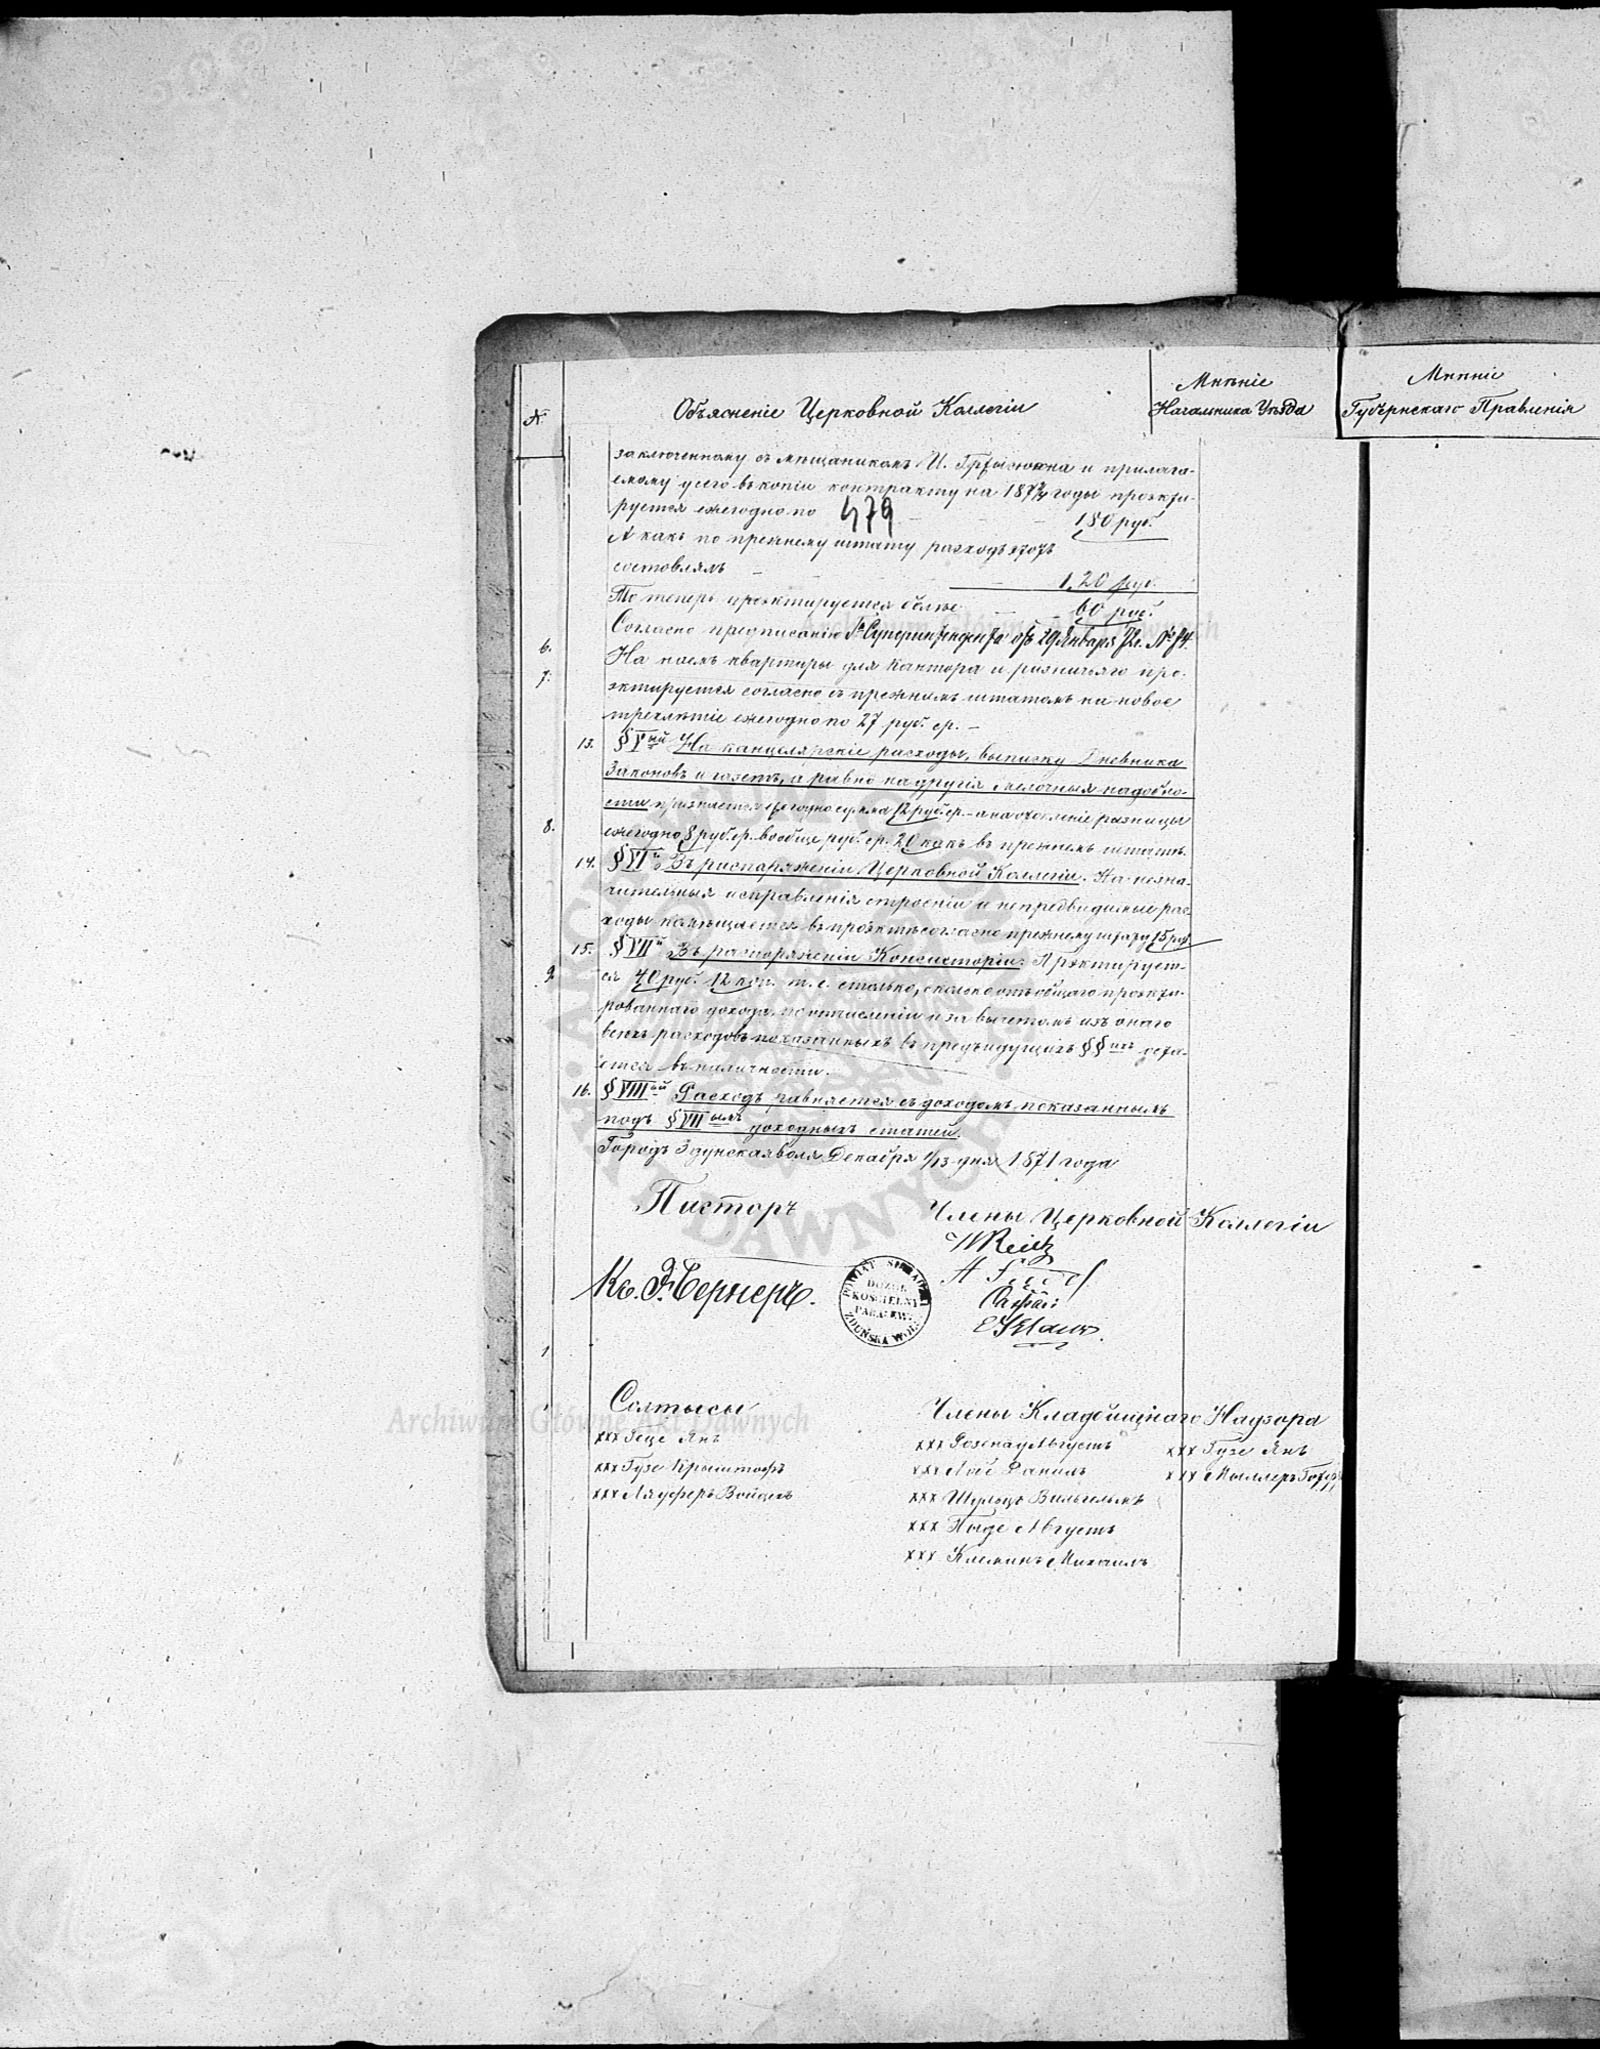 №
Объясненіе Церковной Коллегіи
Мнѣніе
Начальника Уѣзда
Мнѣніе
Губернскаго Правленія
заключенному съ мѣщаникомъ И. и прилага-
емому у сего въ копіи контракту на годы проэкти-
руется ежегодно по 180 руб.
479
А какъ по прежнему штату расходъ этотъ
составлялъ 120 руб.
То теперь проэктируется болѣе 60 руб.
6. Согласно предписанію Суперинтендента отъ 29 Января 72 г. № 74.
7. На наемъ квартиры для Кантора и ризничьяго про-
эктируется согласно съ прежнимъ штатомъ на новое
трехлѣтіе ежегодно по 27 руб. ср. –
13. § V ый На канцелярскіе расходы, выписку Дневника
Законовъ и газетъ, а равно на другія мелочныя надобно-
сти ежегодно сумма 12 руб. ср. – а на разницы
8. ежегодно 8 руб. ср. вообще руб. ср. 20 какъ въ прежнемъ штатѣ.
14. § VI й Въ распоряженіи Церковной Коллегіи. На незна-
чительныя исправленія строеніи и непредвидимые рас-
ходы помѣщается въ проэктѣ согласно прежнему штату 15 руб.
15. § VII й Въ распоряженіи Консисторіи. Проктирует-
9. ся 40 руб. 12 коп. т. е. столько, сколько отъ общаго проэкти-
рованнаго дохода, по отчисленіи и за вычетомъ изъ онаго
всѣхъ расходовъ показанныхъ въ предъидущихъ §§ ихъ оста-
ется въ наличности.
16. § VIII ой Расходъ равняется съ доходомъ показаннымъ
подъ § VII ымъ доходныхъ статей.
Городъ Здунская воля Декабря 1/13 дня 1871 года
Пасторъ
Члены Церковной Коллегіи
Кс. Э. Бернеръ.
POWIAT SIERADZKI
DOZÓR
KOŚCIELNY
PARA. EW.
ZDUŃSKA WOLA
Солтысы
Члены Кладбищнаго Надзора
xxx Геце Янъ
xxx Розенау Августъ
xxx Гузе Янъ
xxx Гузе Крыштофъ
xxx Лай Данилъ
xxx Миллеръ
xxx Войцехъ
xxx Шульцъ Вильгельмъ
xxx Августъ
xxx Клеминъ Михаилъ
Archiwum Główne Akt Dawnych
Archiwum Główne Akt Dawnych